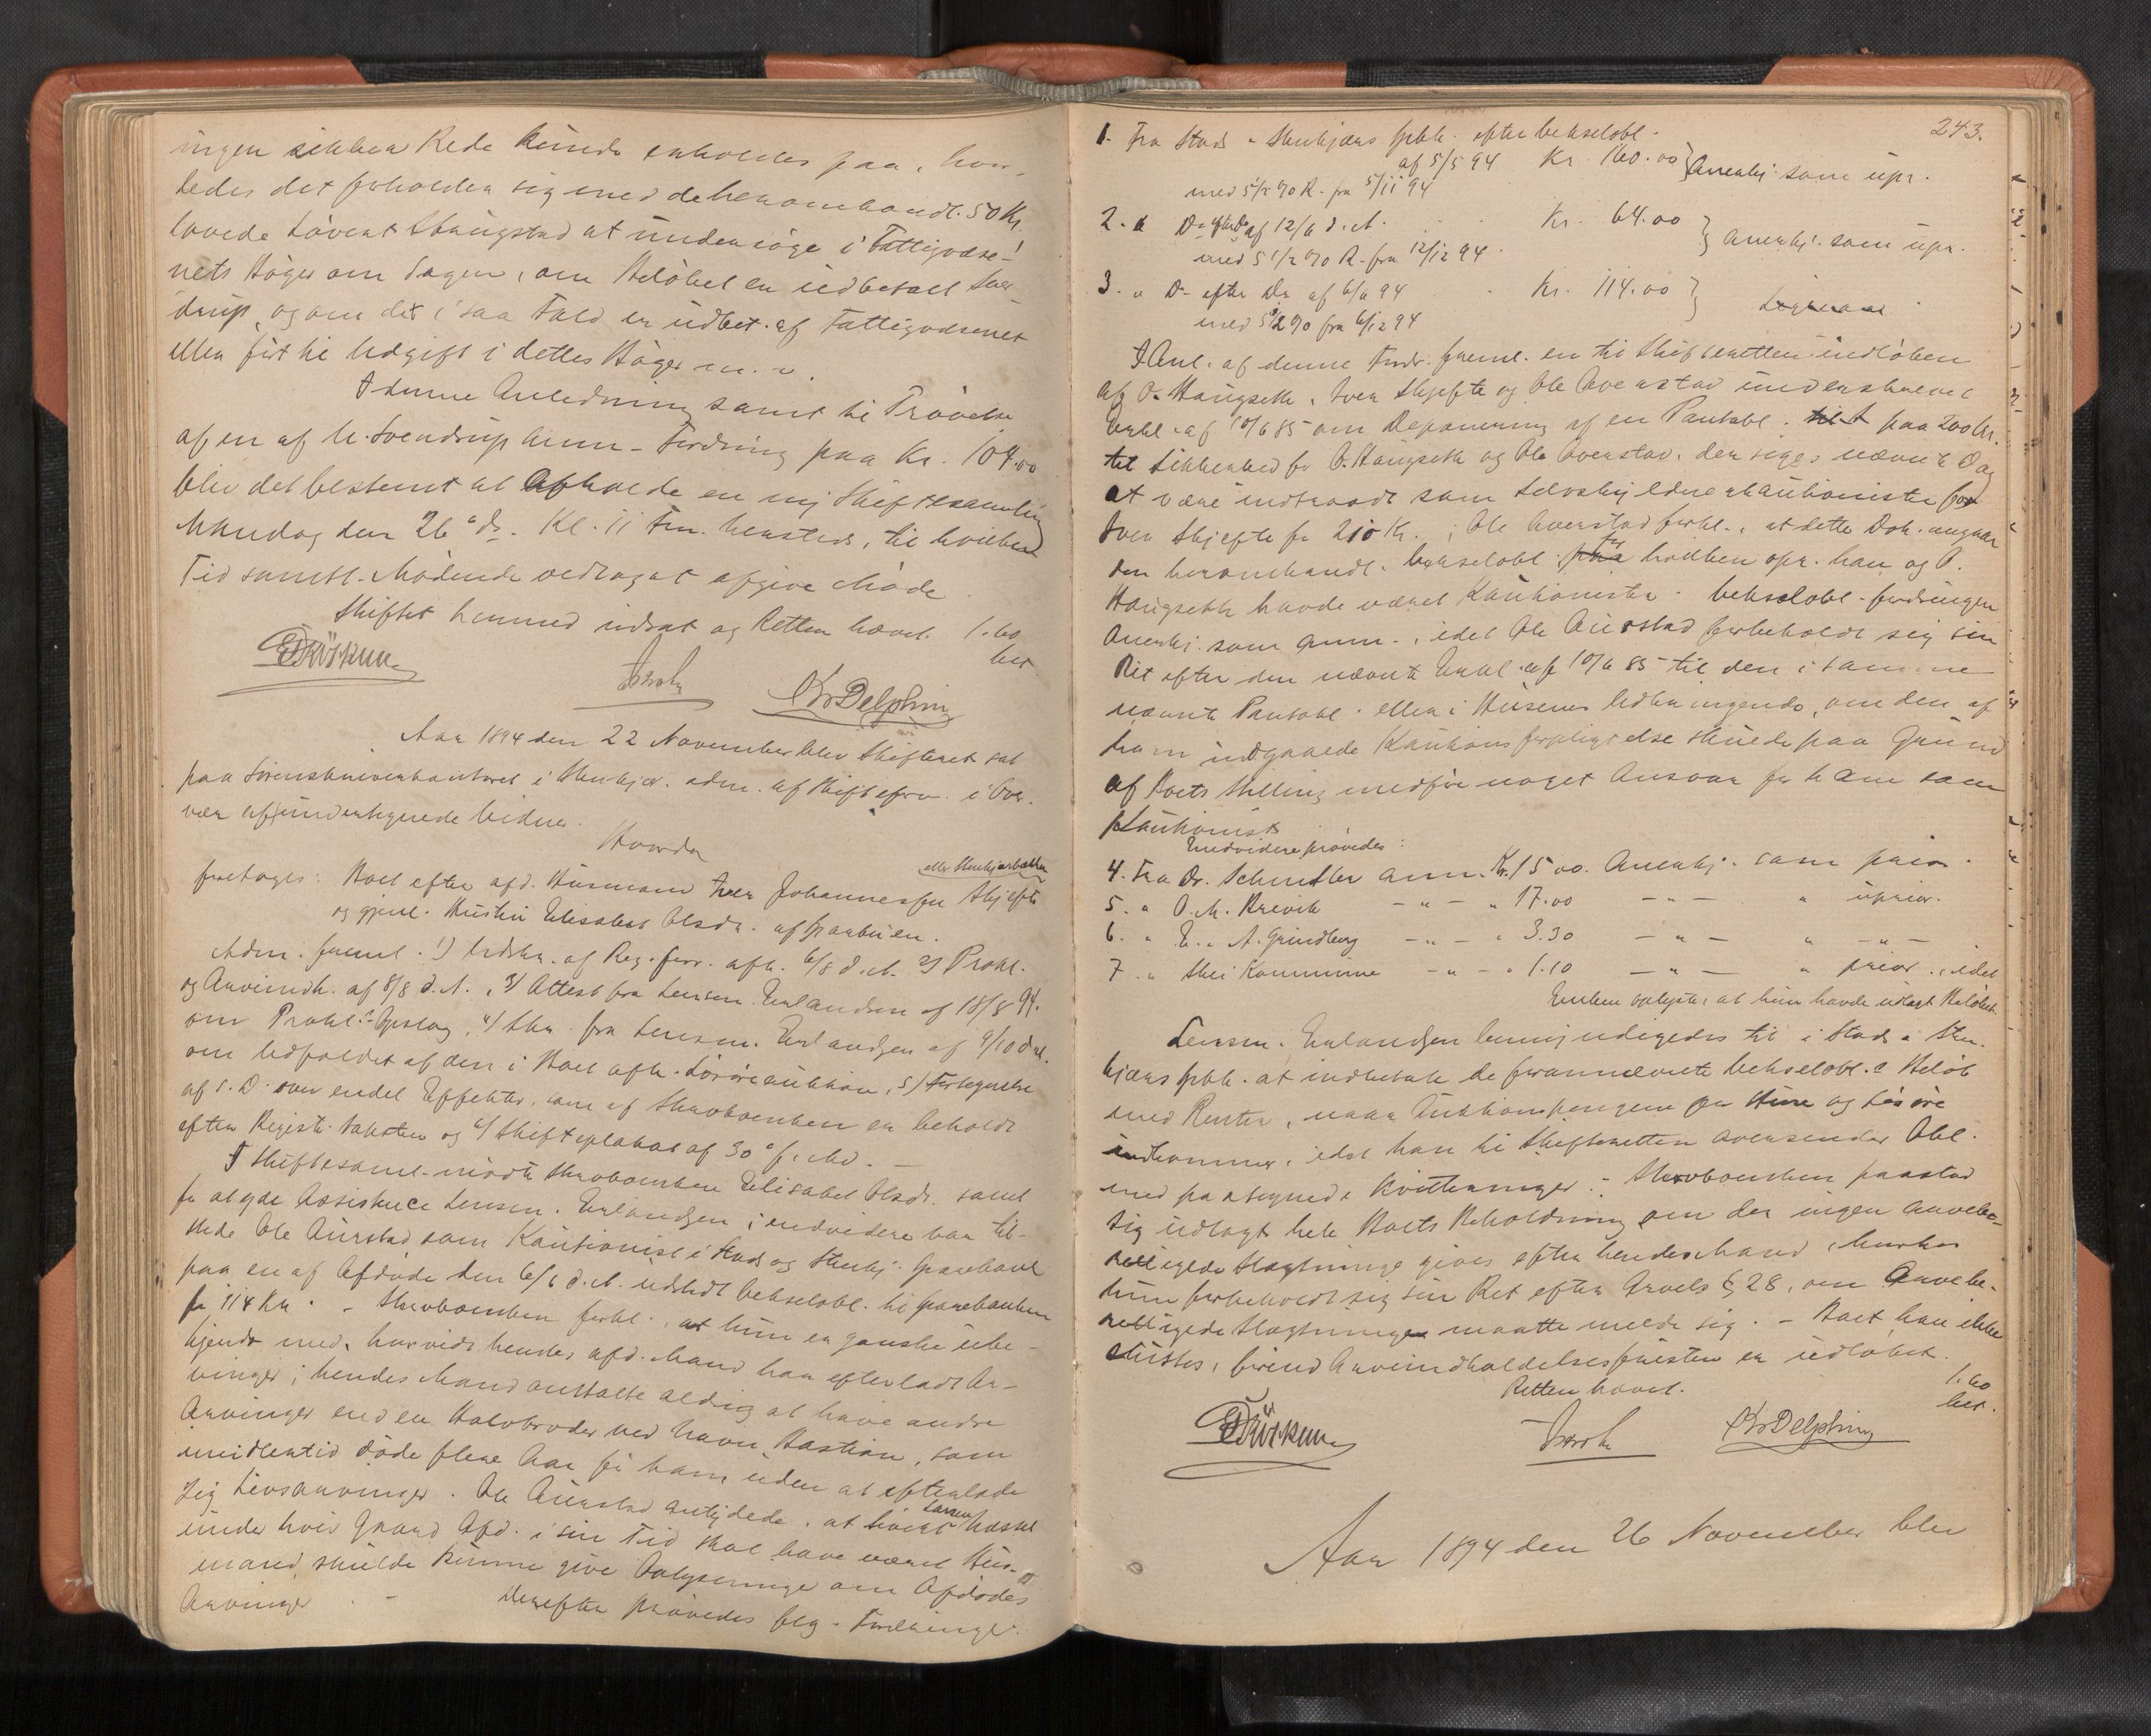 ingen sikker Rede kunde erholdes paa, hvor-
ledes det forholder sig med de heromhandl. 50 Kr.
lovede Lövent Skungstad at undersöge i Fattigvæse-
nets Böger om Sagen, om Belöbet er udbetalt
drup, og om det i saa Fald er udbet. af Fattigvæsenet
eller fört til Udgift i dettes Böger m. v.
I denne Anledning samt til Prövelse
af en af U. Svendrup anm. Fordring paa Kr. 104.00
blev det bestemt at afholde en ny Skiftesamling
Mandag den 26 ds. Kl. 11 Fm. hersteds, til hvilken
Tid samtl. Mödende vedtoget at afgive Möde.
Skiftet hermed udsat og Retten hævet. 1.60
ber.
Kr Delphin
Aar 1894 den 22 November blev Skifteret sat
paa Sorenskriverkontoret i Stenkjær. adm. af Skifteforv. i Over-
vær af undertegnede Vidner.
Hvorda
eller Stenkjærbakken
foretoges: Boet efter afd. Husmand Iver Johannessen Skjefte
og gjenl. Hustru Elisabet Olsdr. af Sparbuen.
Adm. freml. 1) Udskr. af Reg. forr. afh. 6/8 d. A. 2) Prokl.
og Arveindk. af 8/8 d. A., 3) Attest fra Lensm. Erlandsen af 18/8 94.
om Prokl.s Opslag, 4) Skr. fra Lensm. Erlandsen af 9/10 d. A.
om Udfaldet af den i Boet afh. Lösöreauktion, 5) Fortegnelse
af s. D. over endel Effekter, som af Skrvboenken er beholdt
efter Registr. Taksten og 6) Skifteplakat af 30 f. Md. —
I Skiftesaml. mödte Skrvboenken Elisabet Olsdr. samt
for at yde Assistence Lensm. Erlandsen; endvidere var til-
stede Ole Aurstad som Kautionist i Stods og Stenkj. Sparebank
paa en af Afdöde den 6/6 d. A. udstedt Vekselobl. til Sparebanken
for 114 Kr. - Skrvboenken forkl., at hun er ganske ube-
kjendt med, hvorvidt hendes afd. Mand har efterladt Ar-
vinger; hendes Mand omtalte aldrig at have andre
Arvinger end en Halvbroder ved Navn Bastian, som
imidlertid döde flere Aar för ham uden at efterlade
sig Livsarvinger. Ole Aurstad antydede, at Sivert Larsen
under hvis Gaard Afd. i sin Tid skal have været Hus-
mand, skulde kunne give Oplysninger om Afdödes
Arvinger. -
Derefter prövedes flg. Fordringer.
243.
1. Fra Stods - Stenkjærs Spbk. efter Vekselobl.
af 5/5 94 Kr. 160.00 } Anerkj. som upr.
med 5 1/2 % R. fra 5/11 94
2. " Do efter Do af 12/6 d. A. Kr. 64.00 } Anerkj. som upr.
med 5 1/2 % R. fra 12/12 94
3. " Do efter Do af 6/6 94 Kr. 114.00 }
med 5 1/2 % fra 6/12 94
I Anl. af denne Fordr. freml. en til Skifteretten indlöben
af O. Haugseth, Iver Skjefte og Ole Overstad underskrevet
Erkl. af 10/6 85 om Deponering af en Pantobl. paa 200 Kr.
til Sikkerhed for O. Haugseth og Ole Overstad, der siges nævnte Dag
at være indtraadt som Selvskyldnerkautionister for
Iver Skjefte for 210 Kr.; Ole Aurstad forkl., at dette Dok. angaar
den heromhandl. Vekselobl. for hvilken opr. han og O.
Haugseth havde været Kautionister. Vekselobl. fordringen
anerkj. som anm., idet Ole Aurstad forbeholdt sig sin
Ret efter den nævnte Erkl. af 10/6 85 til den i samme
nævnte Pantobl. eller i Husenes Udbringende, om den af
ham indgaaede Kautionsforpligtelse skulde paa Grund
af Boets Stilling medföre noget Ansvar for ham som
Kautionist.
Endvidere prövedes:
4. Fra Dr. Schmettler anm. Kr. 15.00. Anerkj. som prior.
5. " O. M. Brevik - " - " 17.00 - " - " uprior.
6. " E. A. Grindberg - " - " 3.30 - " - " - " -
7. " Stei Kommune - " - " 1.10 - " - " prior., idet
Enken oplyste, at hun havde udlagt Belöbet.
Lensm. Erlandsen bemyndigedes til i Stods & Sten-
kjærs Spbk. at indbetale de forannævnte Vekselobl.s Belöb
med Renter, naar Auktionspengene for Huse og Lösöre
indkommer, idet han til Skifteretten oversender Obl.
med paategnede Kvitteringer. - Skrvboenken paastod
sig udlagt hele Boets Beholdning om der ingen arvebe-
rettigede Slægtninge gives efter hendes Mand, hvorhos
hun forbeholdt sig sin Ret efter Arvels § 28, om Arvebe-
rettigede Slægtninge maatte melde sig. - Boet kan ikke
sluttes, förend Arveindkaldelsesfristen er udlöbet.
Retten hævet. 1.60
ber.
Kr Delphin
Aar 1894 den 26 November blev